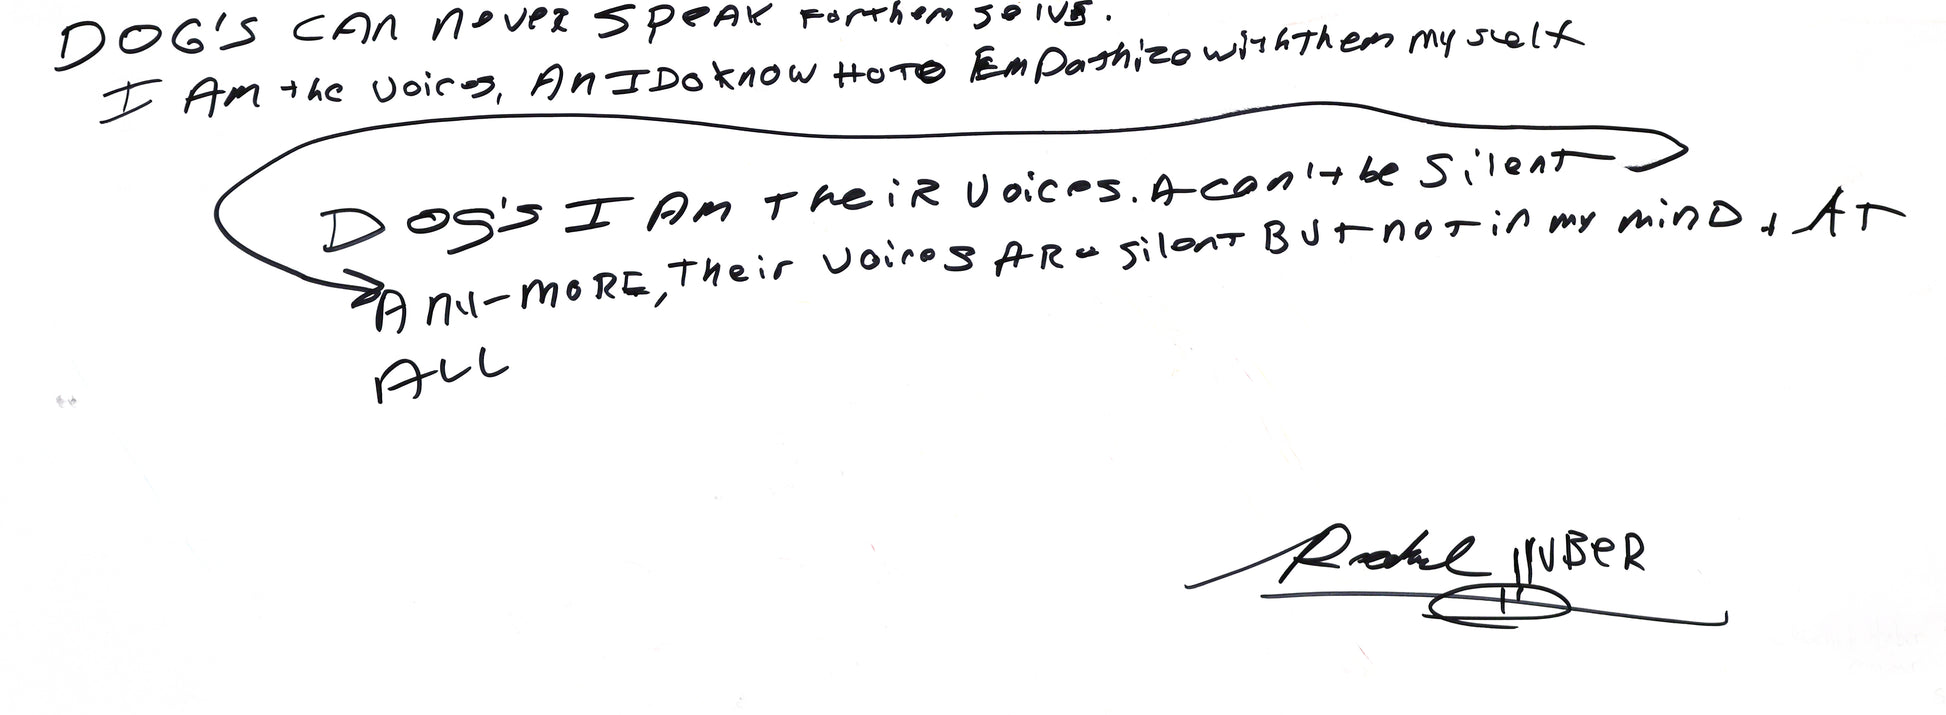 DOG'S CAN NEVER SPEAK FOR them SelVE.
I AM the Voices, AN I DO KNOW HOTO EmPathize with them my self
DOG'S I AM THEIR VOICES. A can't be Silent
ANY-MORE, Their voices ARe silent BUT NOT in my minD, AT
ALL
HUBER